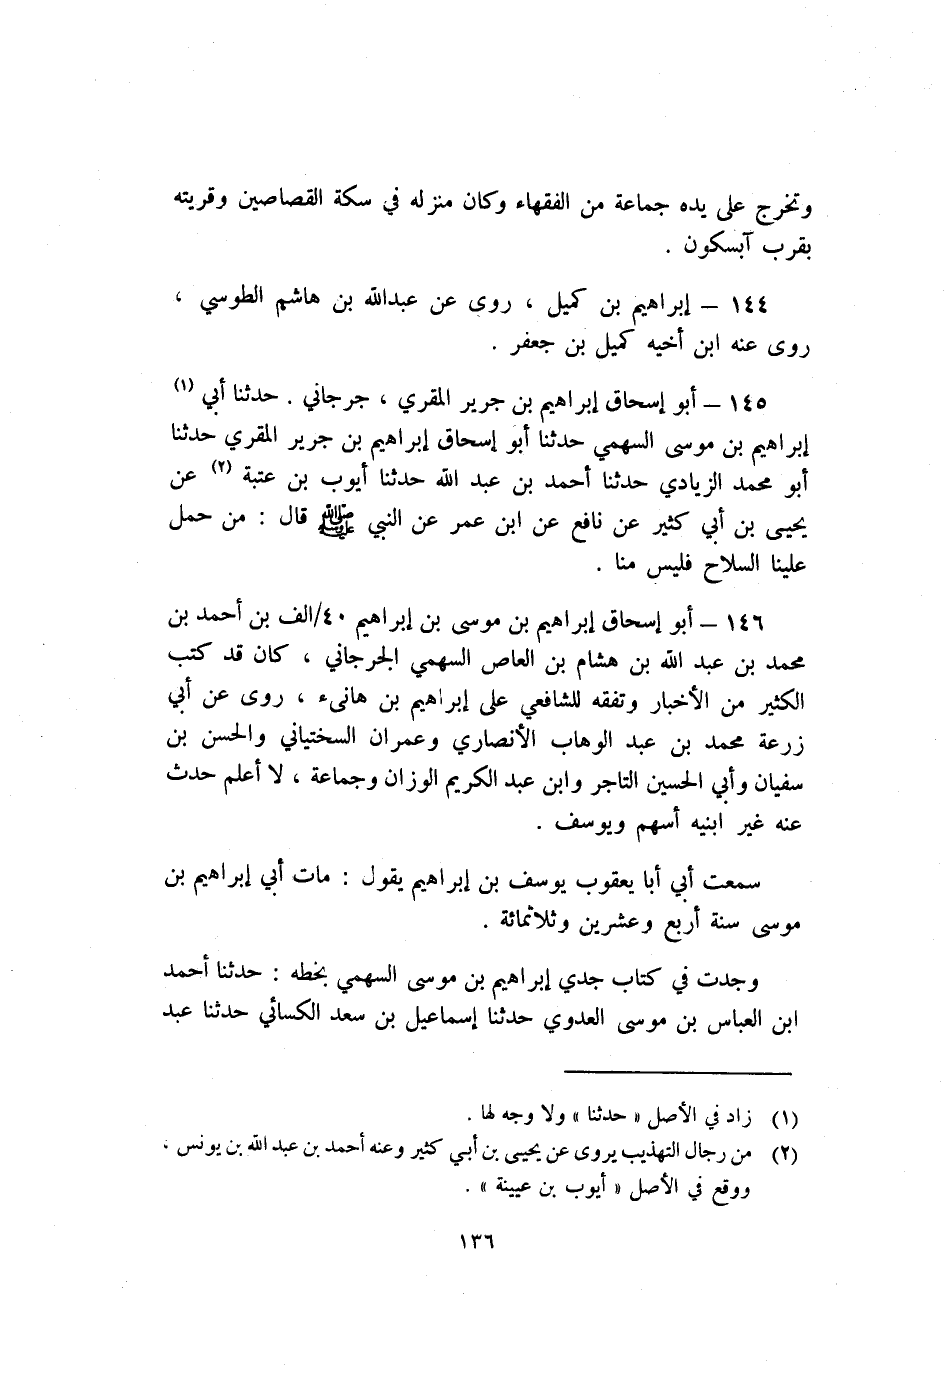 وتخرج على يده جماعة من الفقهاء وكان منزله في سكة القصاصين وقريته
بقرب آبسكون .
١٤٤ – إبراهيم بن كميل ، روى عن عبدالله بن هاشم الطوسي ،
روى عنه ابن أخيه كميل بن جعفر .
١٤٥ – أبو إسحاق إبراهيم بن جرير المقري ، جرجاني . حدثنا أبي (١)
إبراهيم بن موسى السهمي حدثنا أبو إسحاق إبراهيم بن جرير المقري حدثنا
أبو محمد الزيادي حدثنا أحمد بن عبد الله حدثنا أيوب بن عتبة (٢) عن
يحيى بن أبي كثير عن نافع عن ابن عمر عن النبي ﷺ قال : من حمل
علينا السلاح فليس منا .
١٤٦ – أبو إسحاق إبراهيم بن موسى بن إبراهيم ٤٠/الف بن أحمد بن
محمد بن عبد الله بن هشام بن العاص السهمي الجرجاني ، كان قد كتب
الكثير من الأخبار وتفقه للشافعي على إبراهيم بن هانىء ، روى عن أبي
زرعة محمد بن عبد الوهاب الأنصاري وعمران السختياني والحسن بن
سفيان وأبي الحسين التاجر وابن عبد الكريم الوزان وجماعة ، لا أعلم حدث
عنه غير ابنيه أسهم ويوسف .
سمعت أبي أبا يعقوب يوسف بن إبراهيم يقول : مات أبي إبراهيم بن
موسى سنة أربع وعشرين وثلاثمائة .
وجدت في كتاب جدي إبراهيم بن موسى السهمي بخطه : حدثنا أحمد
ابن العباس بن موسى العدوي حدثنا إسماعيل بن سعد الكسائي حدثنا عبد
(١) زاد في الأصل « حدثنا » ولا وجه لها .
(٢) من رجال التهذيب يروى عن يحيى بن أبي كثير وعنه أحمد بن عبد الله بن يونس ،
ووقع في الأصل « أيوب بن عيينة » .
١٣٦